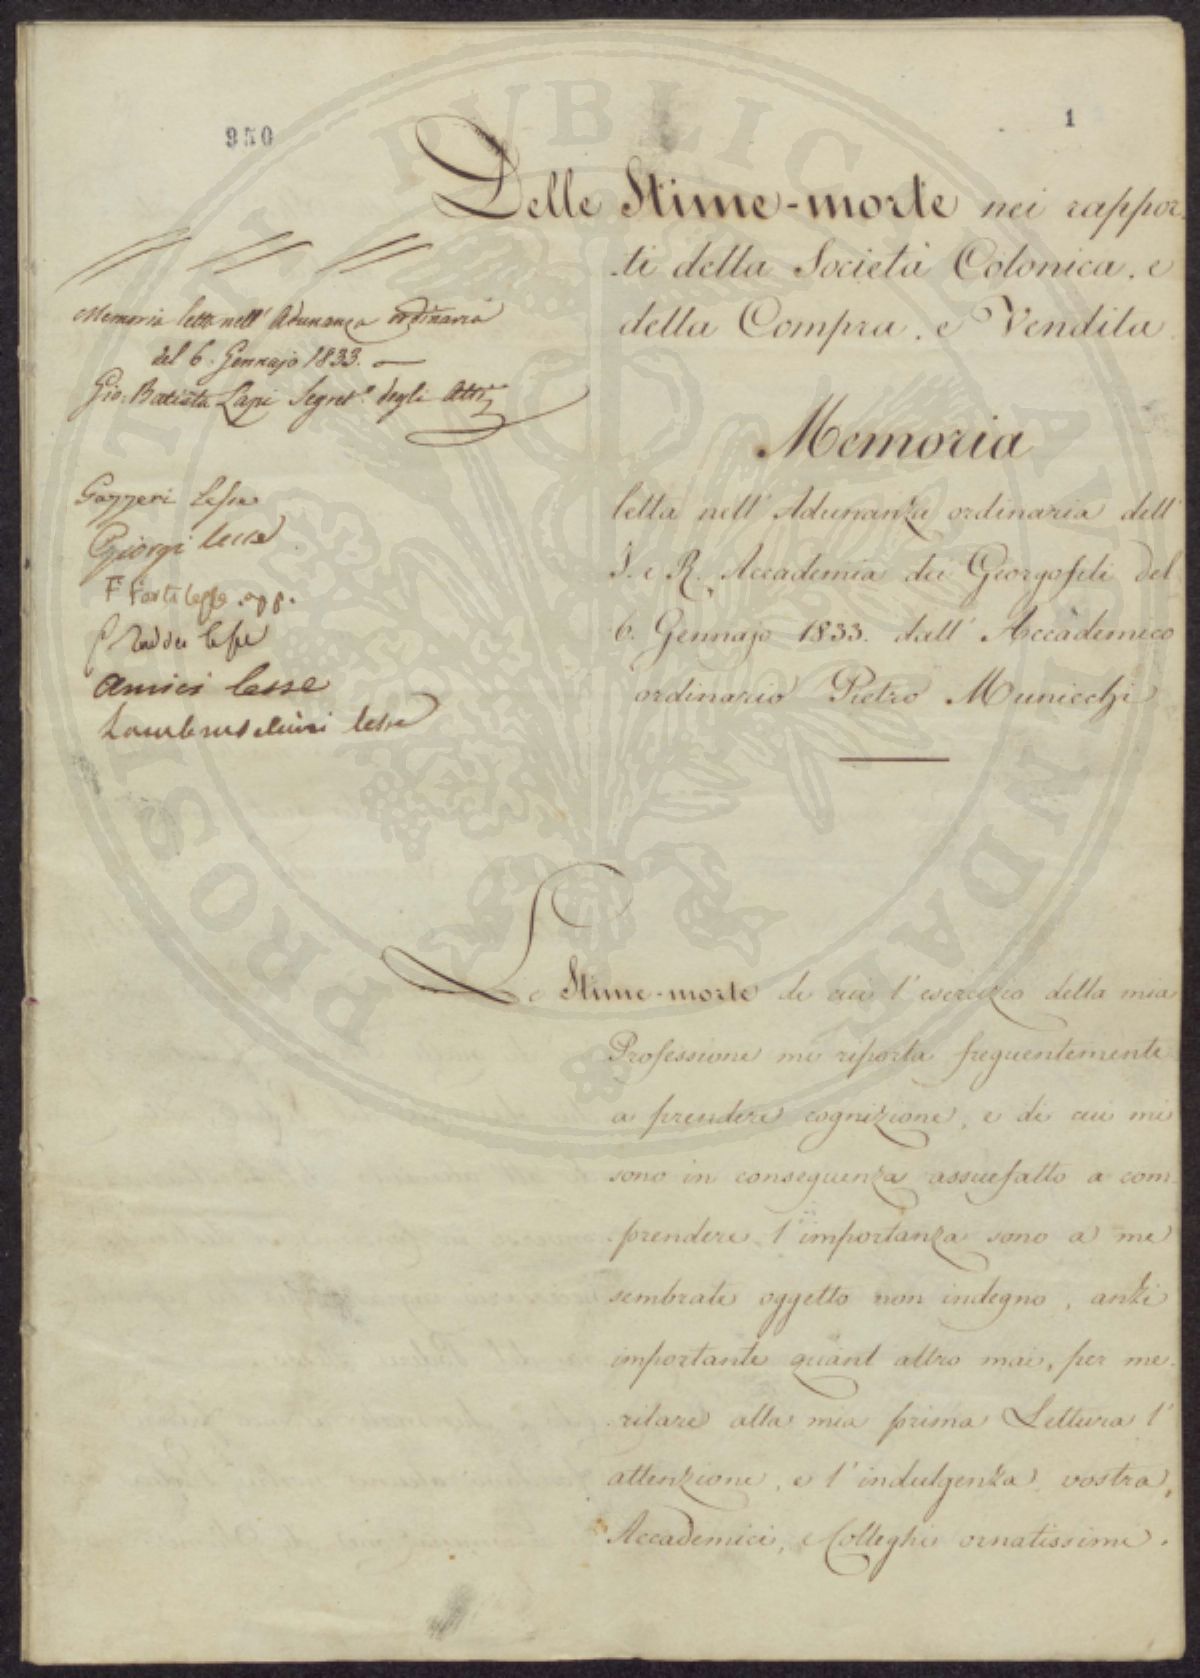 950
1
Delle Stime-morte nei rappor-
ti della Società Colonica, e
della Compra, e Vendita.
Memoria letta nell' Adunanza ordinaria
del 6. Gennajo 1833.
Gio: Batista Lapi Segret.º degli Atti
Memoria
letta nell' Adunanza ordinaria dell'
I. e R. Accademia dei Georgofili del
6. Gennajo 1833. dall' Accademico
ordinario Pietro Municchi
Gazzeri lesse
Giorgi lesse
F Forti lesse app.
Taddei lesse
Amici lesse
Lambruschini lesse
Le Stime-morte di cui l'esercizio della mia
Professione mi riporta frequentemente
a prendere cognizione, e di cui mi
sono in conseguenza assuefatto a com-
prendere l'importanza sono a me
sembrate oggetto non indegno, anzi
importante quant' altro mai, per me-
ritare alla mia prima Lettura l'
attenzione, e l'indulgenza vostra,
Accademici, e Colleghi ornatissimi.
PROSPERITATI PUBLICAE AUGENDAE